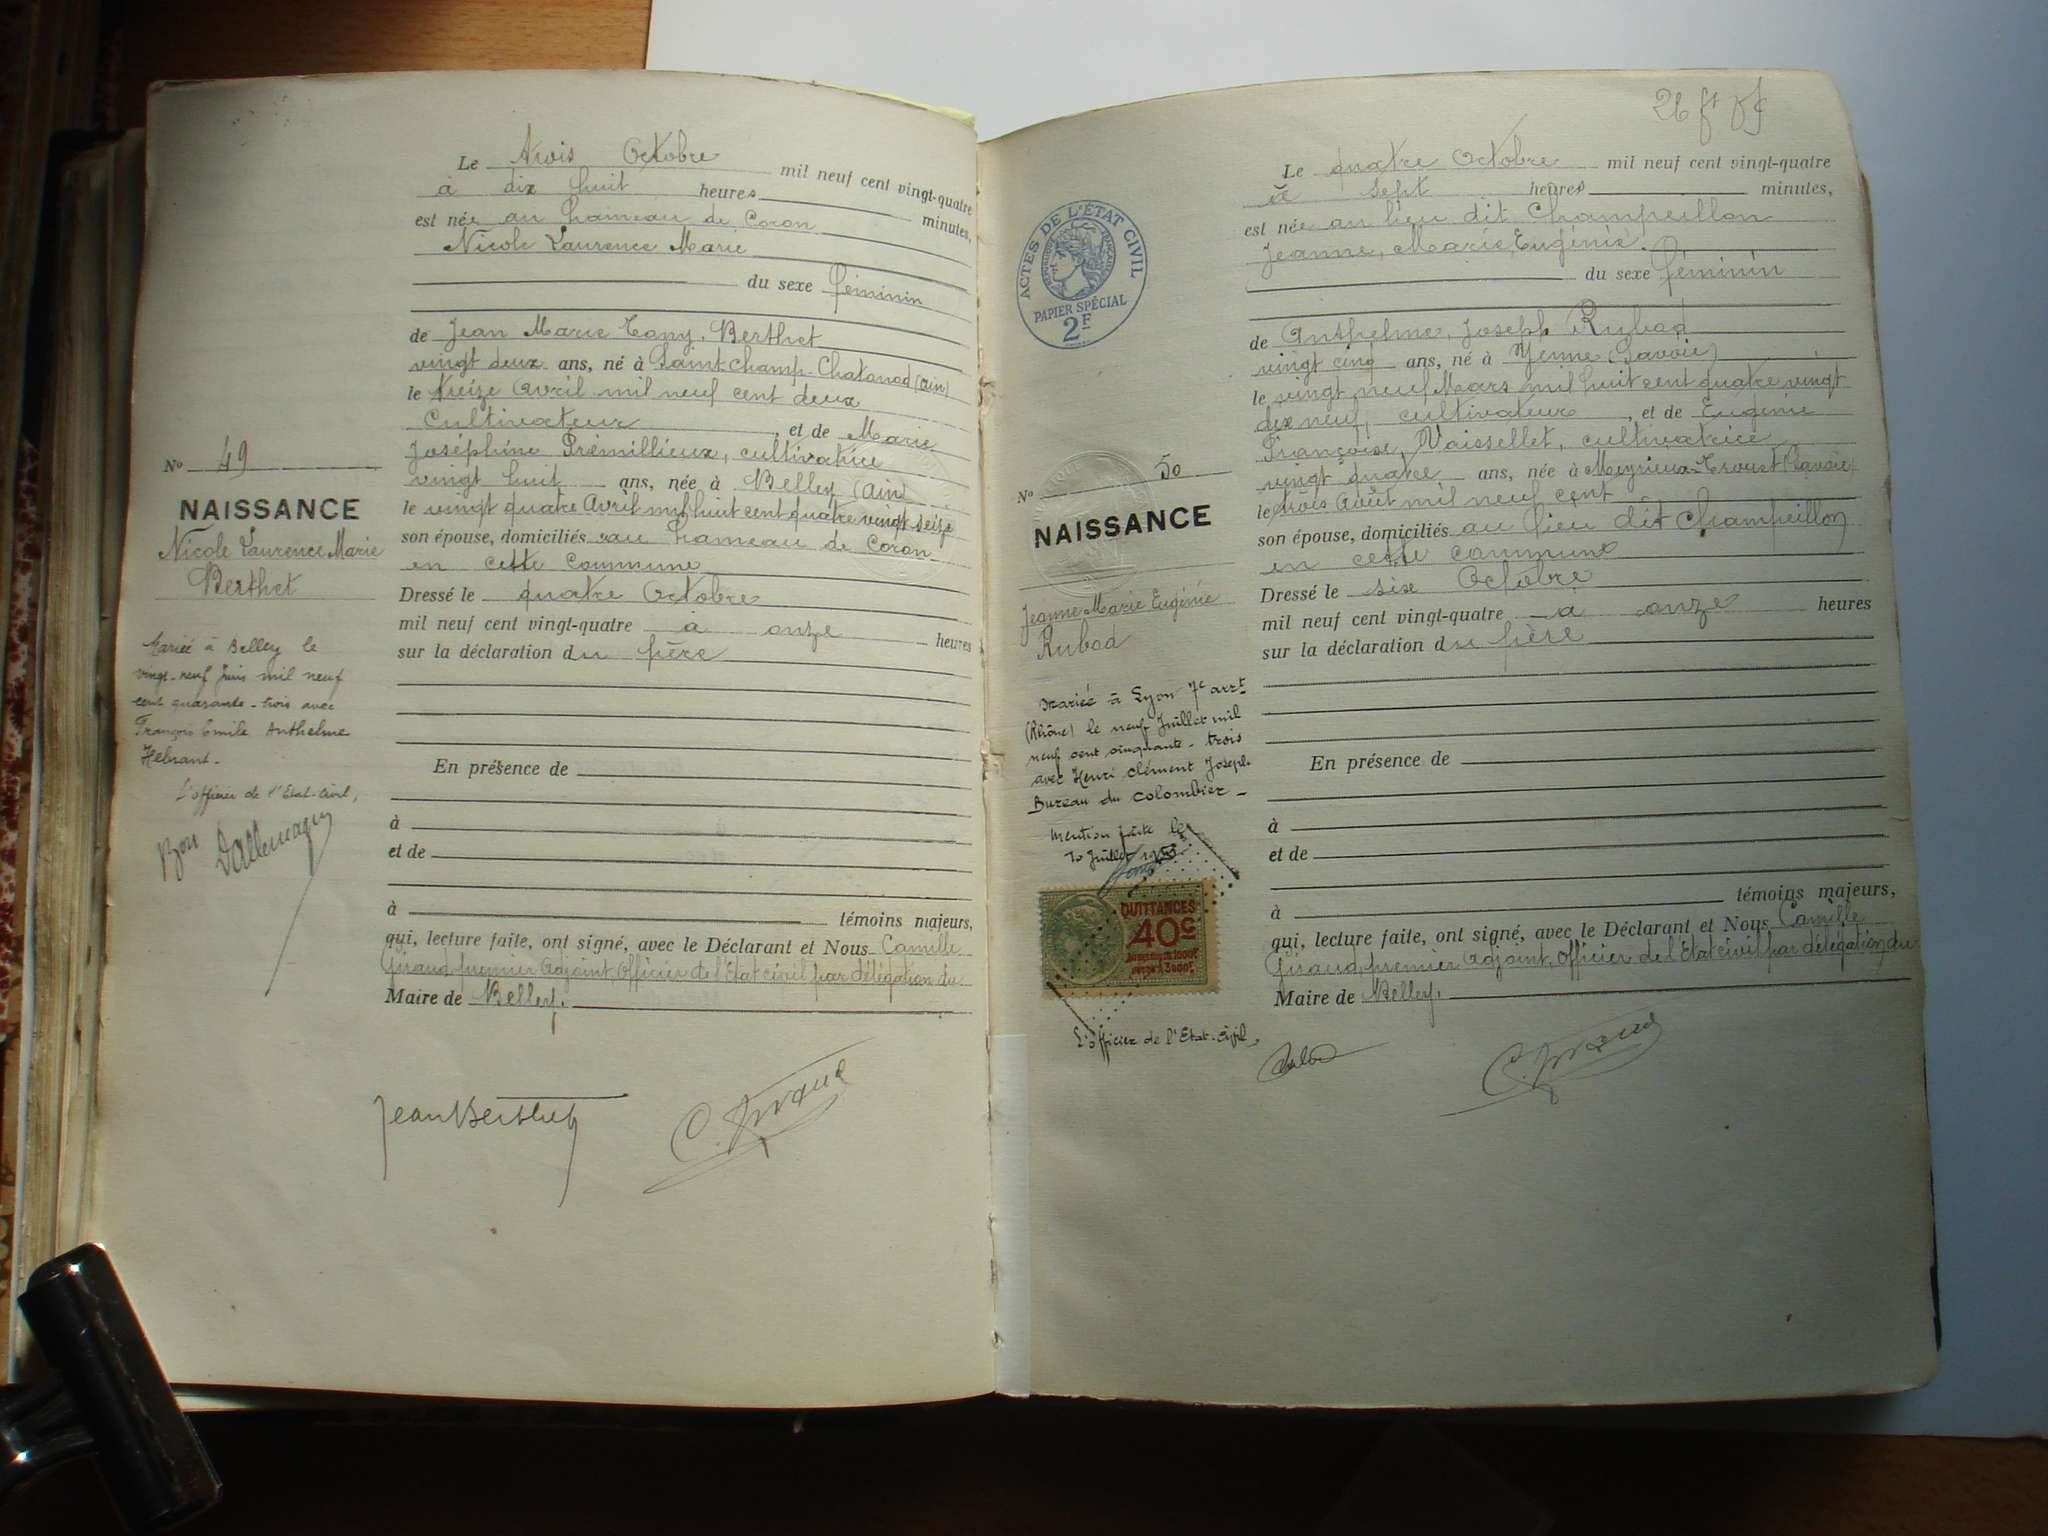 Le trois Octobre mil neuf cent vingt-quatre
à dix huit heures minutes,
est née au hameau de Coron
Nicole Laurence Marie
du sexe féminin
de Jean Marie Tony Berthet
vingt deux ans, né à Saint-Champ-Chatonod (Ain)
le treize Avril mil neuf cent deux
Cultivateur, et de Marie
Joséphine Prémillieux, cultivatrice
vingt huit ans, née à Belley (Ain)
le vingt quatre Avril mil huit cent quatre vingt seize
son épouse, domiciliés au hameau de Coron
en cette commune
Dressé le quatre Octobre
mil neuf cent vingt-quatre à onze heures
sur la déclaration du père
En présence de
à
et de
à témoins majeurs,
qui, lecture faite, ont signé, avec le Déclarant et Nous Camille
Giraud, premier Adjoint, Officier de l'Etat civil par délégation du
Maire de Belley.
Jean Berthet
C. Giraud
No 49
NAISSANCE
Nicole Laurence Marie
Berthet
Mariée à Belley le
vingt-neuf Juin mil neuf
cent quarante-trois avec
François Emile Anthelme
Hebrant-
L'officier de l'Etat-Civil,
Bon Dallemagne
26 ft
ACTES DE L'ÉTAT CIVIL
PAPIER SPÉCIAL
2F
Le quatre Octobre mil neuf cent vingt-quatre
à sept heures minutes,
est née au lieu dit Champeillon
Jeanne, Marie, Eugénie.
du sexe féminin
de Anthelme, Joseph Rubod
vingt cinq ans, né à Yenne (Savoie)
le vingt neuf Mars mil huit cent quatre vingt
dix neuf, cultivateur, et de Eugénie
Françoise Vaissellet, cultivatrice
vingt quatre ans, née à Meyrieux-Trouet (Savoie)
le trois Août mil neuf cent
son épouse, domiciliés au lieu dit Champeillon
en cette commune
Dressé le six Octobre
mil neuf cent vingt-quatre à onze heures
sur la déclaration du père
En présence de
à
et de
à témoins majeurs,
qui, lecture faite, ont signé, avec le Déclarant et Nous Camille
Giraud, premier Adjoint, Officier de l'Etat civil par délégation du
Maire de Belley.
Rubod
C. Giraud
No 50
NAISSANCE
Jeanne Marie Eugénie
Rubod
Mariée à Lyon 7e arrt
(Rhône) le neuf Juillet mil
neuf cent cinquante-trois
avec Henri Clément Joseph
Bureau du Colombier-
Mention faite le
10 Juillet
QUITTANCES
40c
L'officier de l'Etat-Civil,